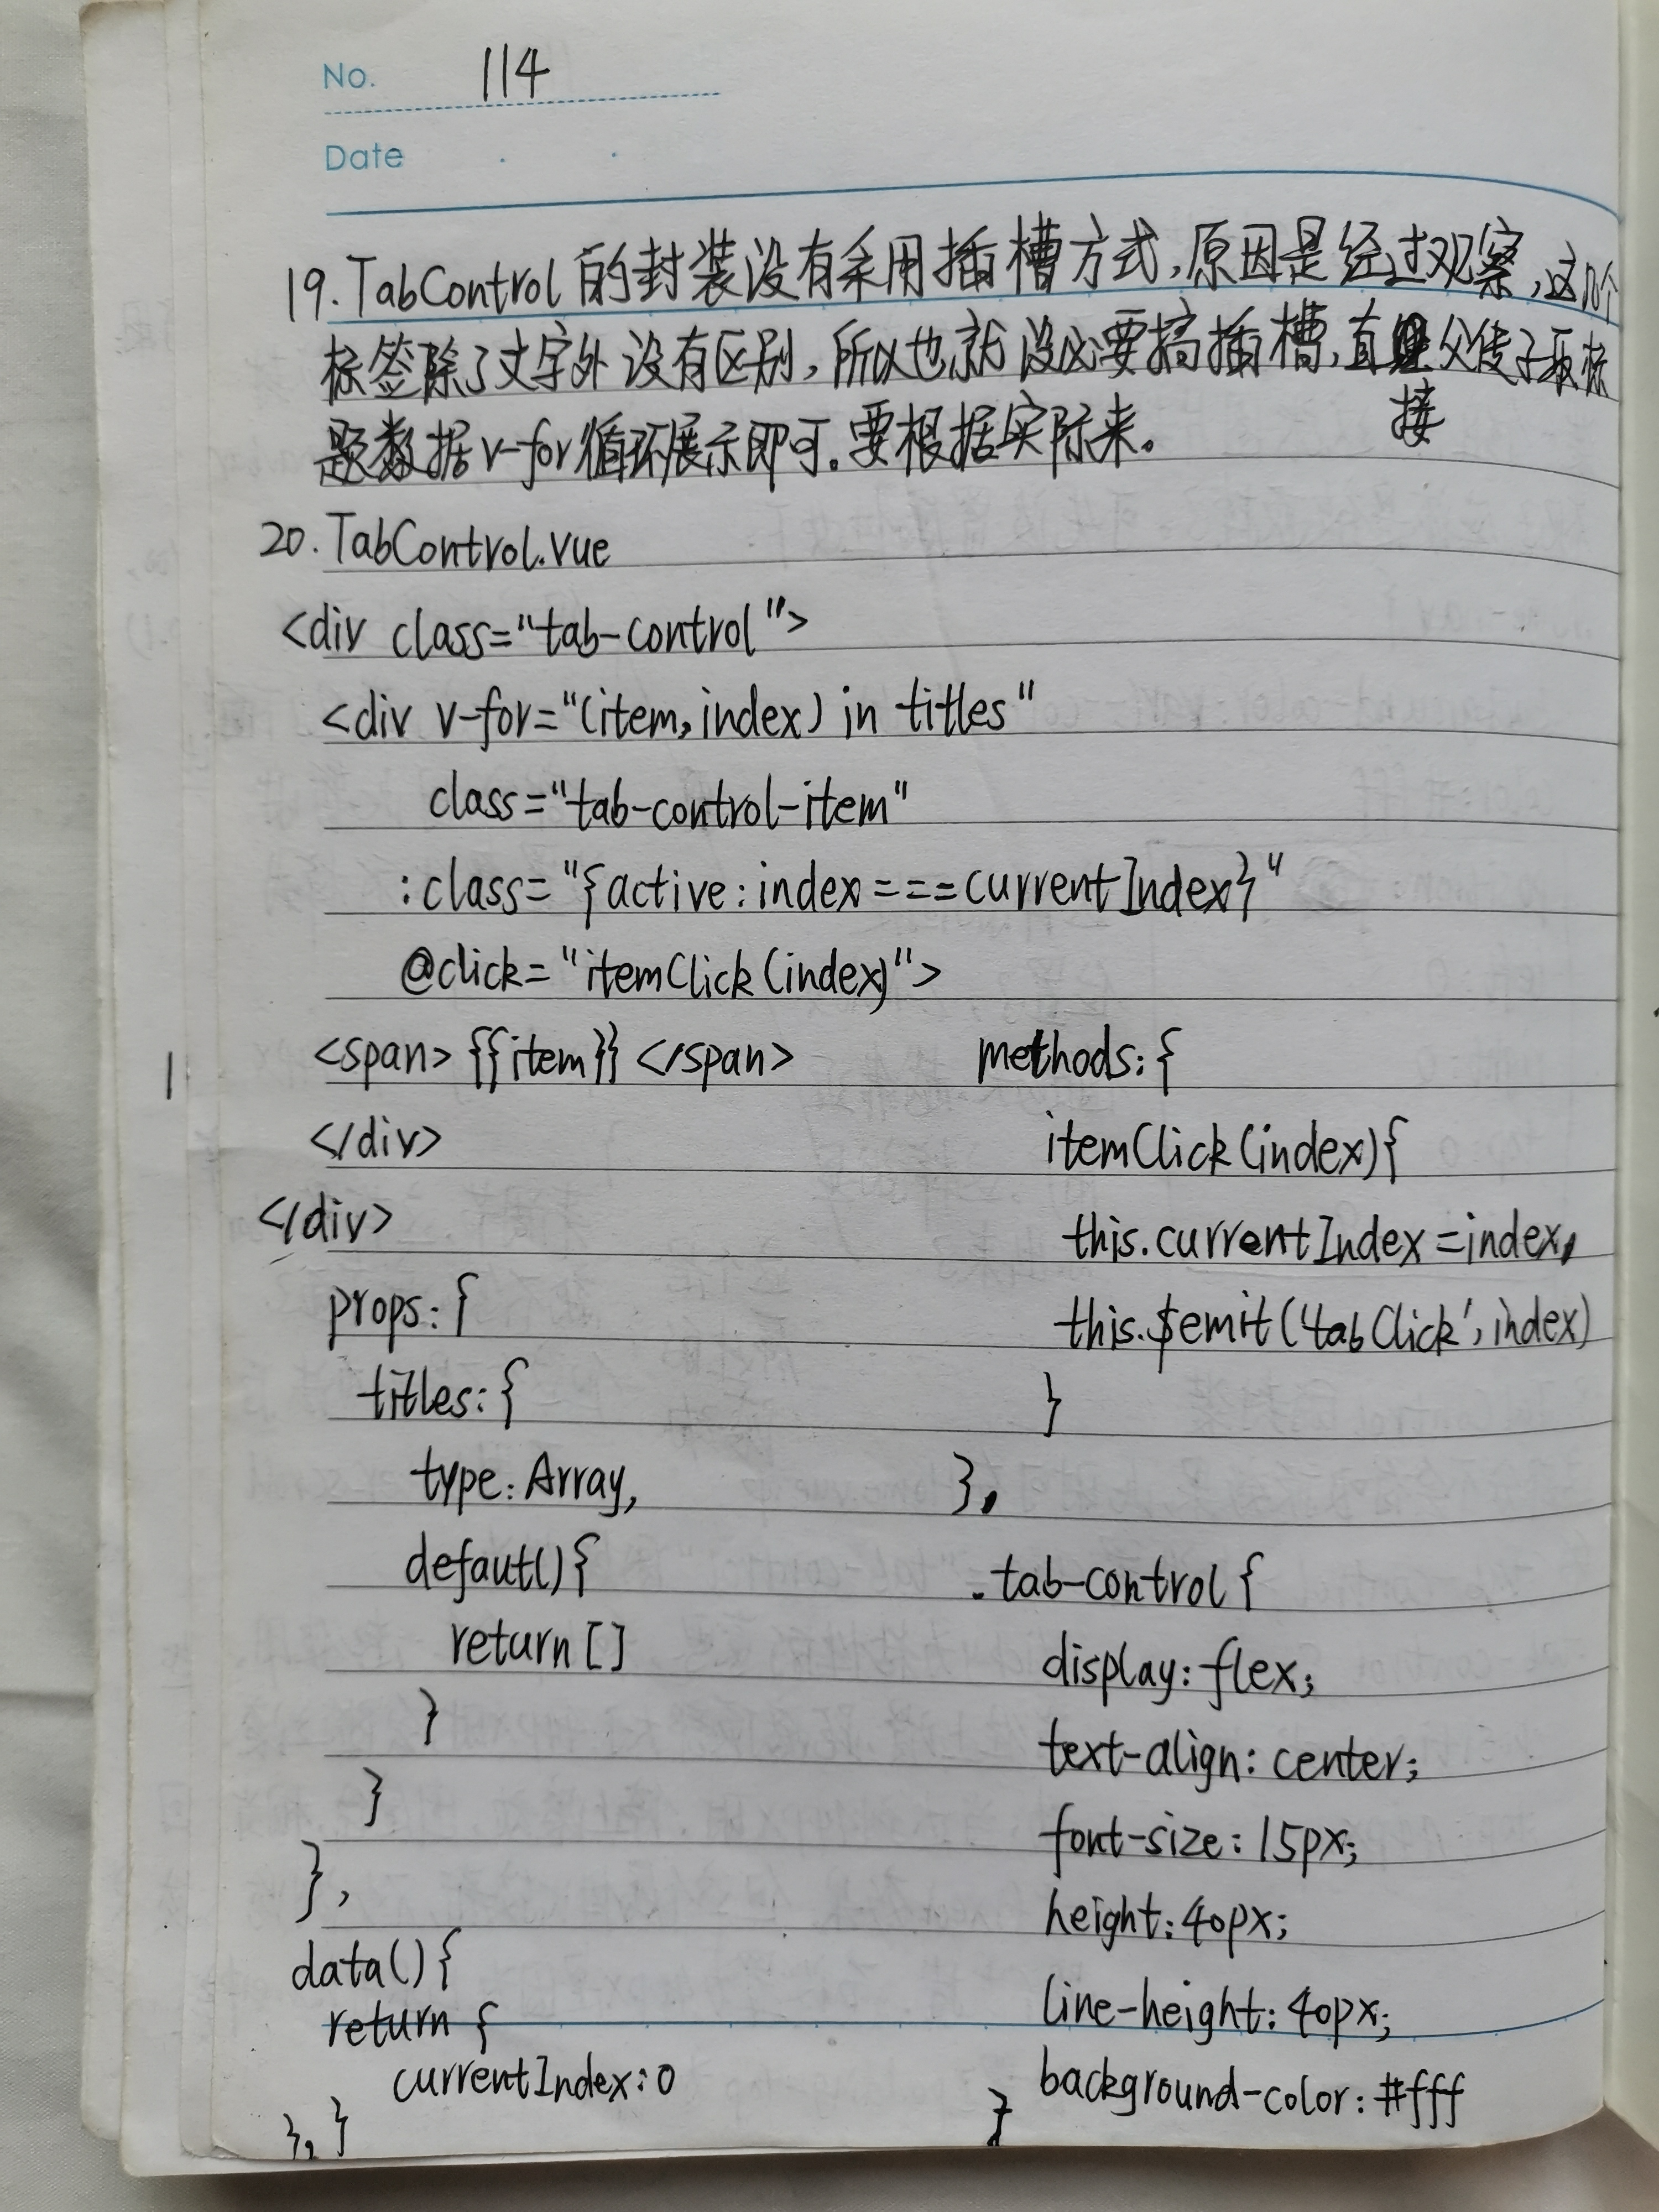 No. 114
Date
19.TabControl的封装没有采用插槽方式,原因是经过观察,这几个
标签除了文字外没有区别,所以也就没必要搞插槽,直接父传子取标
题数据v-for循环展示即可。要根据实际来。
20.TabControl.vue
<div class="tab-control">
<div v-for="(item,index) in titles"
class="tab-control-item"
:class="{active:index===currentIndex}"
@click="itemClick(index)">
<span>{{item}}</span>
</div>
</div>
props:{
titles:{
type:Array,
defaut(){
return[]
}
}
},
data(){
return{
currentIndex:0
},}
methods:{
itemClick(index){
this.currentIndex=index,
this.$emit('tabClick',index)
}
},
.tab-control{
display:flex;
text-align:center;
font-size:15px;
height:40px;
line-height:40px;
background-color:#fff
}